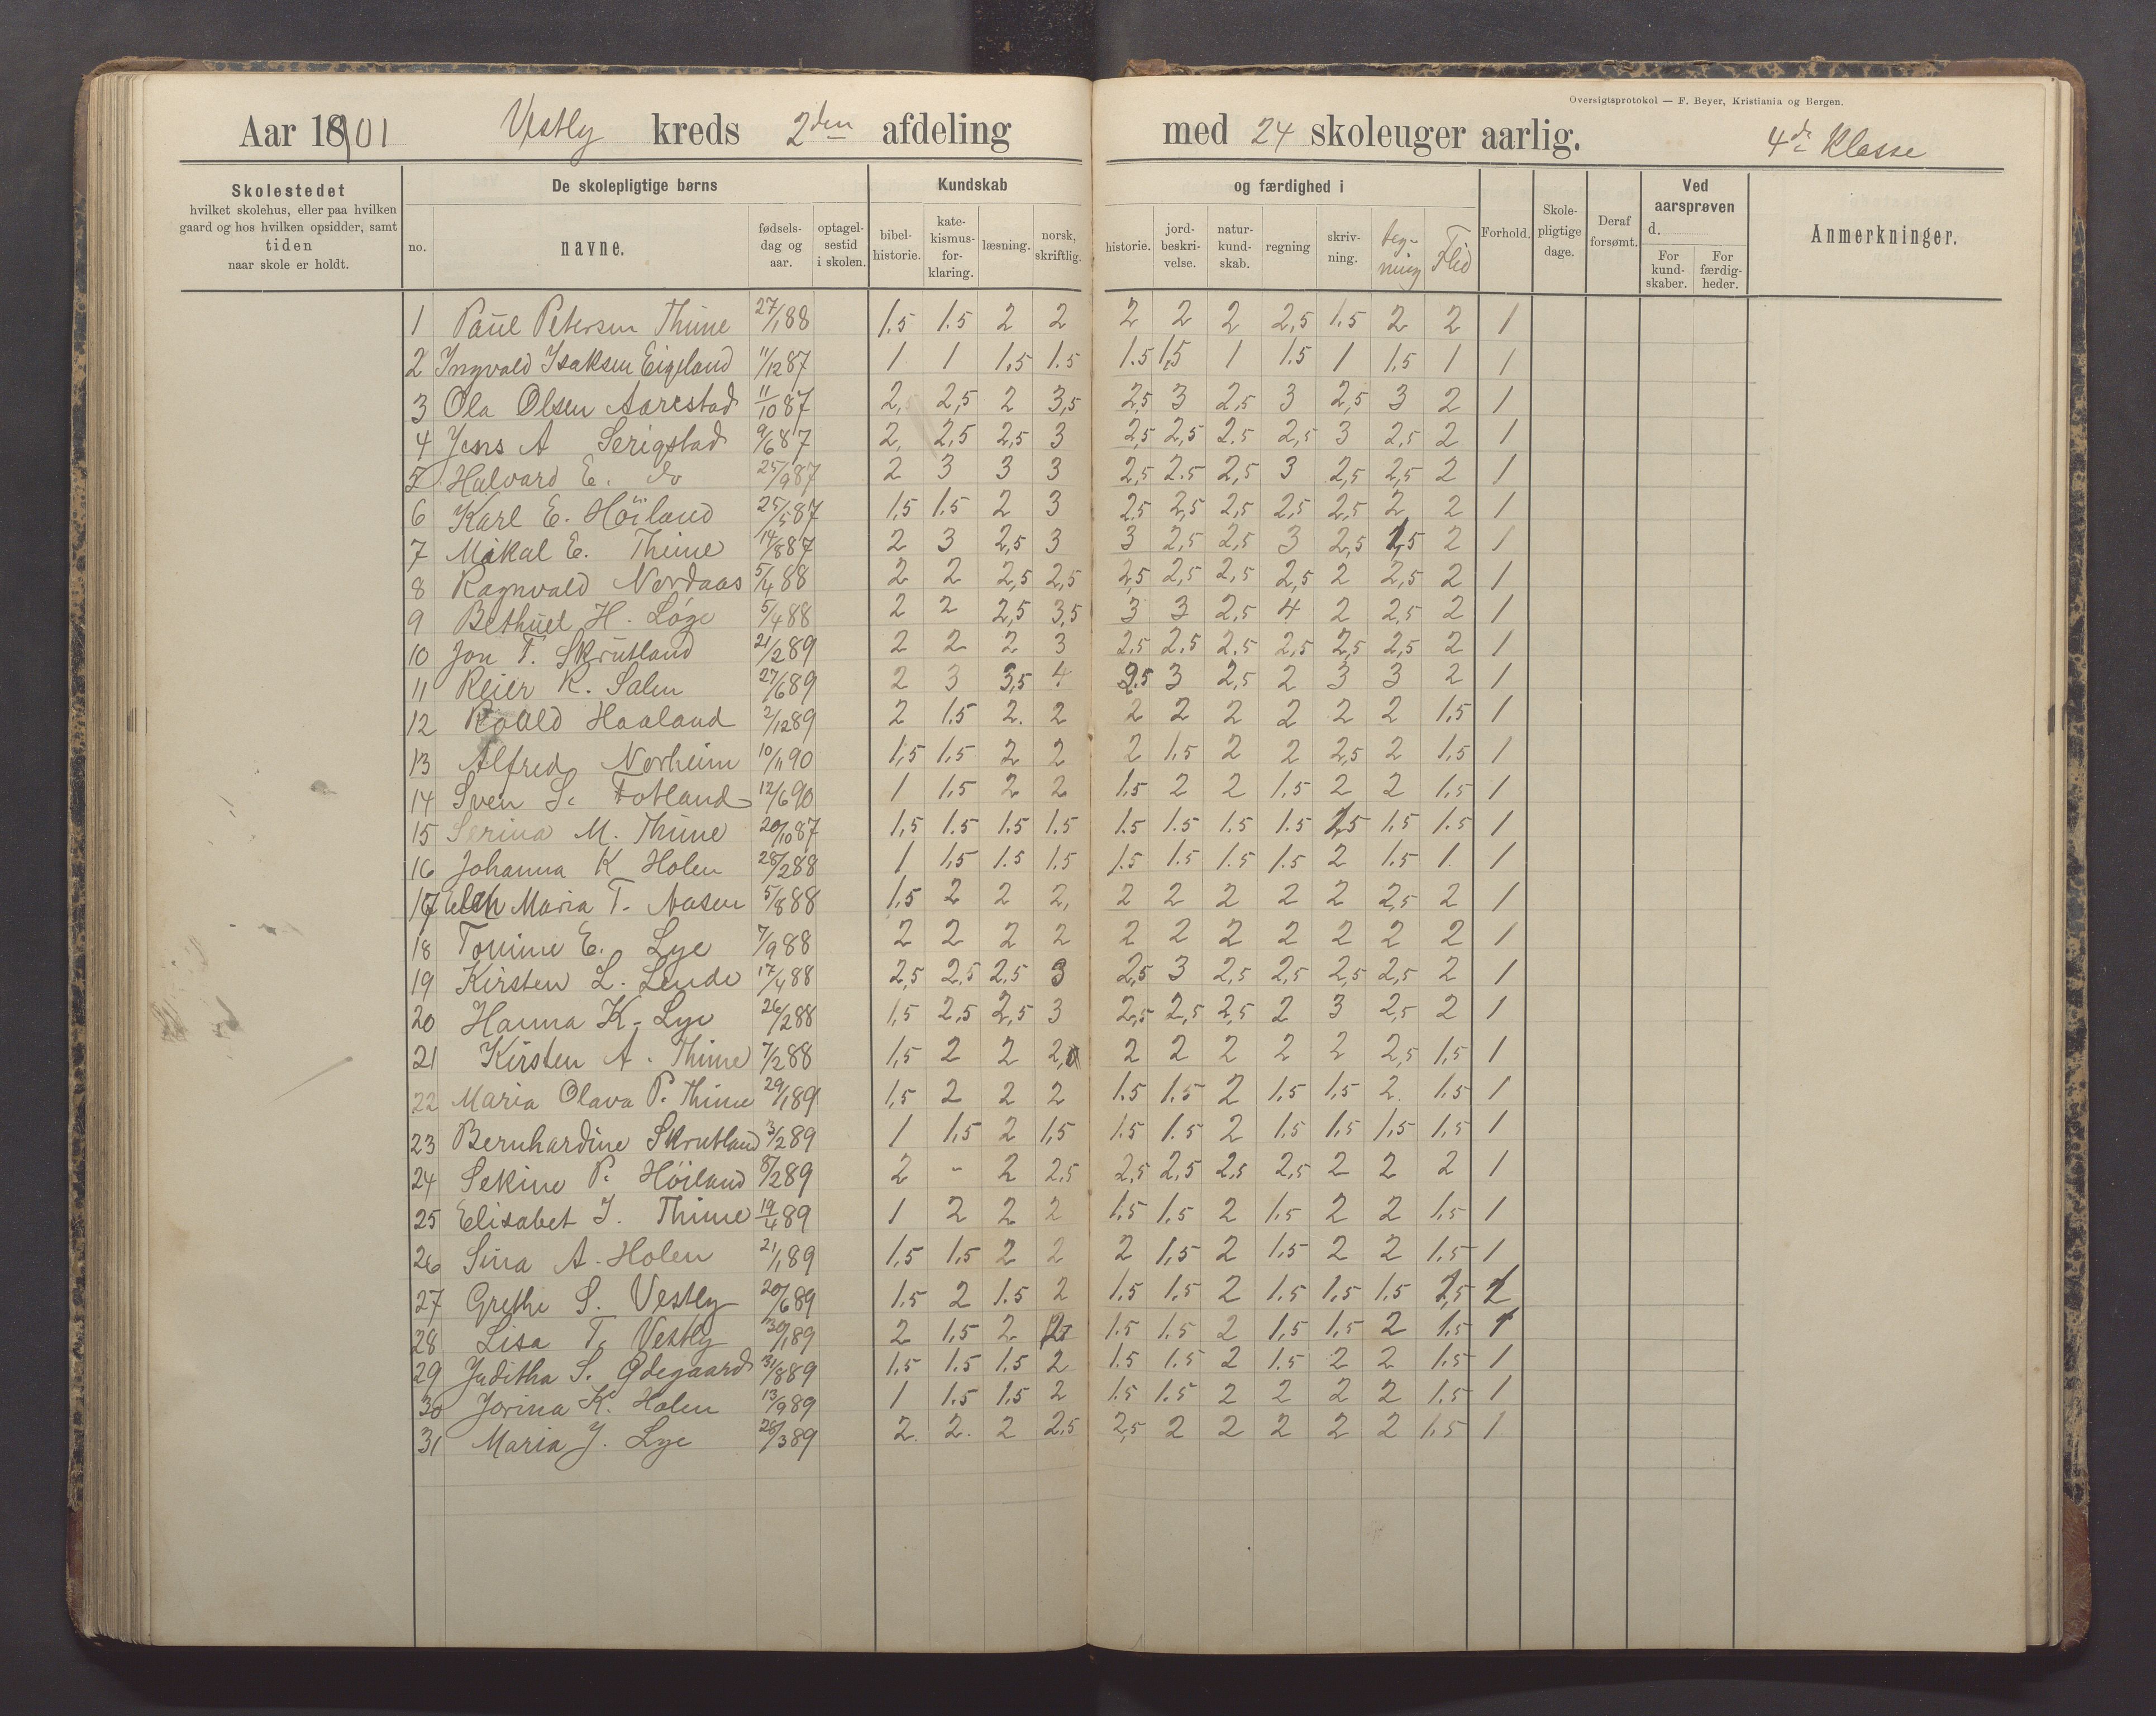 Oversigtsprotokol — F. Beyer, Kristiania og Bergen.
Aar 1901 Vestly kreds 2den afdeling med 24 skoleuger aarlig. 4de Klasse
Skolestedet hvilket skolehus, eller paa hvilken gaard og hos hvilken opsidder, samt tiden naar skole er holdt.
De skolepligtige børns
no. navne. fødsels-dag og aar. optagel-sestid i skolen.
Kundskab og færdighed i
bibel-historie. kate-kismus-for-klaring. læsning. norsk, skriftlig. historie. jord-beskri-velse. natur-kund-skab. regning skriv-ning. teg-ning Flid
Forhold. Skole-pligtige dage. Deraf forsømt.
Ved aarsprøven d. For kund-skaber. For færdig-heder.
Anmerkninger.
1 Paul Petersen Thime 27/1 88 1.5 1.5 2 2 2 2 2 2,5 1.5 2 2 1
2 Ingvald Isaksen Eigeland 11/12 87 1 1 1,5 1.5 1.5 1,5 1 1.5 1 1,5 1 1
3 Ola Olsen Aarestad 11/10 87 2, 2,5 2 3,5 2,5 3 2,5 3 2,5 3 2 1
4 Jens A Serigstad 9/6 87 2, 2,5 2,5 3 2,5 2,5 2.5 2,5 3 2,5 2 1
5 Halvard E. do 25/9 87 2 3 3 3 2,5 2.5 2,5 3 2,5 2,5 2 1
6 Karl E. Höiland 25/5 87 1,5 1.5 2 3 2,5 2,5 2,5 2,5 2,5 2 2 1
7 Mikal E. Thime 14/8 87 2 3 2,5 3 3 2,5 2,5 3 2,5 1,5 2 1
8 Ragnvald Nordaas 5/4 88 2 2 2,5 2,5 2,5 2,5 2,5 2,5 2 2,5 2 1
9 Bethuel H. Løge 5/4 88 2 2 2,5 3,5 3 3 2,5 4 2 2,5 2 1
10 Jon T. Skrutland 21/2 89 2 2 2 3 2,5 2.5 2.5 2,5 2,5 2,5 2 1
11 Reier K. Salen 27/6 89 2 3 3,5 4 2.5 3 2,5 2 3 3 2 1
12 Roald Haaland 2/12 89 2 1.5 2. 2 2 2 2 2 2 2 1,5 1
13 Alfred Norheim 10/11 90 1,5 1,5 2 2 2 1,5 2 2 2,5 2 1.5 1
14 Sven S. Fotland 12/6 90 1 1,5 2 2 1.5 2 2 1.5 2 2 1.5 1
15 Serina M. Thime 20/10 87 1,5 1.5 1.5 1.5 1.5 1.5 1.5 1.5 1,5 1,5 1.5 1
16 Johanna K Holen 28/2 88 1 1,5 1.5 1.5 1.5 1.5 1.5 1.5 2 1.5 1. 1
17 Maria T. Aasen 5/8 88 1,5 2 2 2, 2 2 2 2 2 2,5 2 1
18 Tomine E. Lye 7/9 88 2 2 2 2 2 2 2 2 2 2 2 1
19 Kirsten L. Lende 17/4 88 2,5 2,5 2,5 3 2,5 3 2,5 2,5 2,5 2,5 2 1
20 Hanna K. Lye 26/2 88 1,5 2,5 2,5 3 2,5 2,5 2,5 2 3 2,5 2 1
21 Kirsten A. Thime 7/2 88 1,5 2 2 2, 2 2 2 2 2 2,5 1,5 1
22 Maria Olava P. Thime 29/1 89 1,5 2 2 2 1.5 1.5 2 1,5 1,5 2. 1.5 1
23 Bernhardine Skrutland 3/2 89 1 1,5 2 1,5 1.5 1.5 2 1.5 1,5 1,5 1,5 1
24 Sekine P. Höiland 8/2 89 2 - 2 2,5 2,5 2,5 2,5 2,5 2 2 2 1
25 Elisabet J. Thime 19/4 89 1 2 2 2 1.5 1,5 2 1,5 2 2 1,5 1
26 Sina A. Holen 21/1 89 1,5 1,5 2 2 2 1,5 2 1,5 2 2 1,5 1
27 Grethe S. Vestly 20/6 89 1.5 2 1.5 2 1.5 1.5 2 1.5 1.5 1.5 1,5 1
28 Lisa T. Vestly 30/1 89 2 1,5 2 2 1.5 1.5 2 1,5 1,5 2 1,5 1
29 Juditha S. Ødegaard 31/8 89 1,5 1.5 1.5 2 1.5 1.5 2 1.5 2 2 1.5 1
30 Jorina K. Holen 13/9 89 1 1.5 1,5 2 1.5 1.5 2 2 2 2 1.5 1
31 Maria J. Lye 28/3 89 2. 2. 2 2,5 2,5 2 2 2 2 2 1.5 1